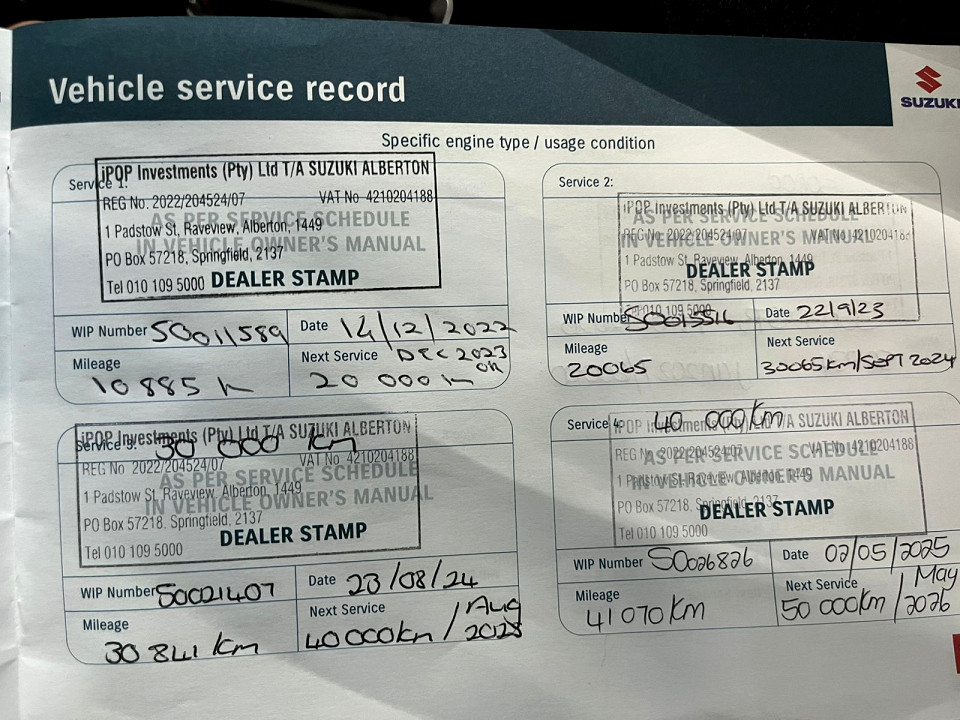 Vehicle service record
SUZUKI
Specific engine type / usage condition
Service 1:
iPOP Investments (Pty) Ltd T/A SUZUKI ALBERTON
REG No. 2022/204524/07 VAT No 4210204188
AS PER SERVICE SCHEDULE
1 Padstow St, Raveview, Alberton, 1449
IN VEHICLE OWNER'S MANUAL
PO Box 57218, Springfield, 2137
Tel 010 109 5000 DEALER STAMP
WIP Number S0011589 Date 14/12/2022
Mileage Next Service DEC 2023
OR
10 885 k 20 000 k
Service 2:
iPOP Investments (Pty) Ltd T/A SUZUKI ALBERTON
AS PER SERVICE SCHEDULE
REG No. 2022/204524/07 VAT No 421020418
IN VEHICLE OWNER'S MANUAL
1 Padstow St, Raveview, Alberton, 1449
DEALER STAMP
PO Box 57218, Springfield, 2137
010 109 5000
WIP Number Date 22/9/23
Mileage Next Service
20065 30065km/SEPT 2024
Service 3: 30 000 km
iPOP Investments (Pty) Ltd T/A SUZUKI ALBERTON
REG No 2022/204524/07 VAT No 4210204188
AS PER SERVICE SCHEDULE
1 Padstow St, Raveview, Alberton, 1449
IN VEHICLE OWNER'S MANUAL
PO Box 57218, Springfield, 2137
DEALER STAMP
Tel 010 109 5000
WIP Number S0021407 Date 23/08/24
Mileage Next Service
30 841 km 40 000km / Aug
Service 4: 40 000km
iPOP Investments (Pty) Ltd T/A SUZUKI ALBERTON
REG No. 2022/204524/07 VAT No 4210204188
AS PER SERVICE SCHEDULE
1 Padstow St, Raveview, Alberton, 1449
IN VEHICLE OWNER'S MANUAL
PO Box 57218, Springfield, 2137
DEALER STAMP
Tel 010 109 5000
WIP Number S0026826 Date 02/05/2025
Mileage Next Service
41 070 km 50 000km / May
2026